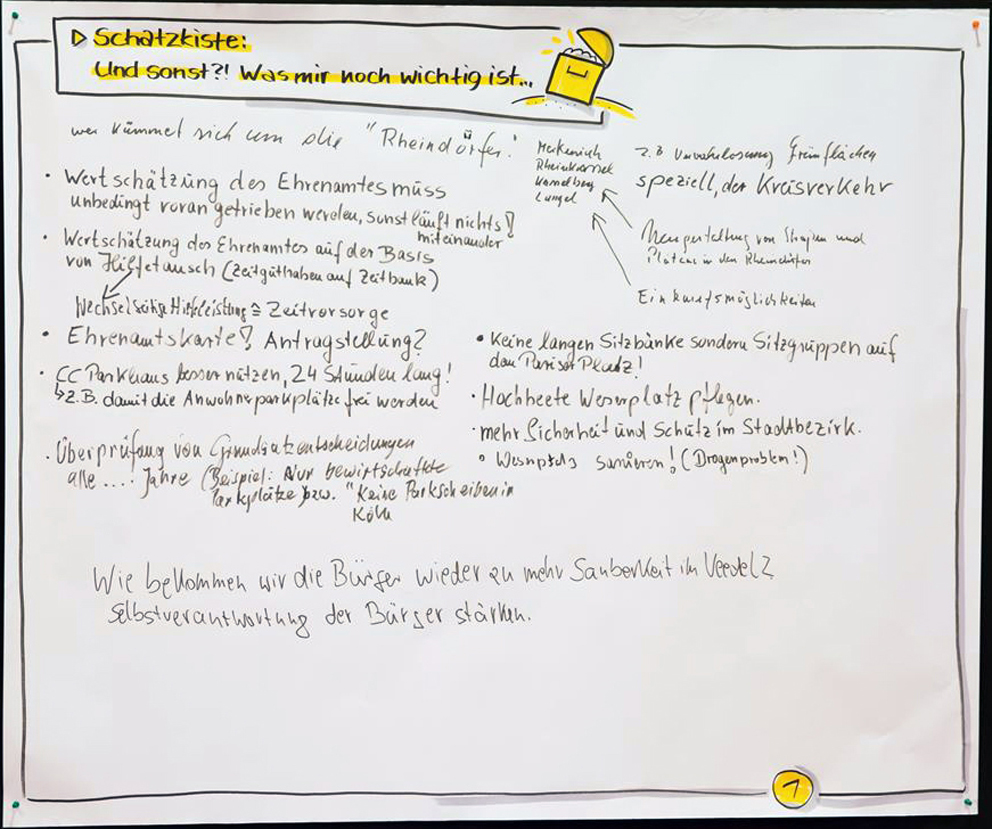 Schatzkiste:
Und sonst?! Was mir noch wichtig ist...
wer kümmert sich um die "Rheindörfer".
Merkenich
Rheinkassel
Kasselberg
Langel
z.B Verwahrlosung Grünflächen
speziell, der Kreisverkehr
Neugestaltung von Straßen und
Plätzen in den Rheindörfer
Einkaufsmöglichkeiten
· Wertschätzung des Ehrenamtes muss
unbedingt vorangetrieben werden, sonst läuft nichts!
miteinander
· Wertschätzung des Ehrenamtes auf der Basis
von Hilfetausch (Zeitguthaben auf Zeitbank)
Wechselseitige Hilfeleistung ≙ Zeitvorsorge
· Ehrenamtskarte! Antragstellung?
· CC Parkhaus besser nützen, 24 Stunden lang!
↳ z.B. damit die Anwohnerparkplätze frei werden
· Überprüfung von Grundsatzentscheidungen
alle .... Jahre (Beispiel: Nur bewirtschaftete
Parkplätze bzw. "Keine Parkscheiben in
Köln
• Keine langen Sitzbänke sondern Sitzgruppen auf
den Pariser Platz!
· Hochbeete Weserplatz pflegen.
· mehr Sicherheit und Schutz im Stadtbezirk.
° sanieren! (Drogenproblem!)
Wie bekommen wir die Bürger wieder zu mehr Sauberkeit im Veedel?
Selbstverantwortung der Bürger stärken.
1